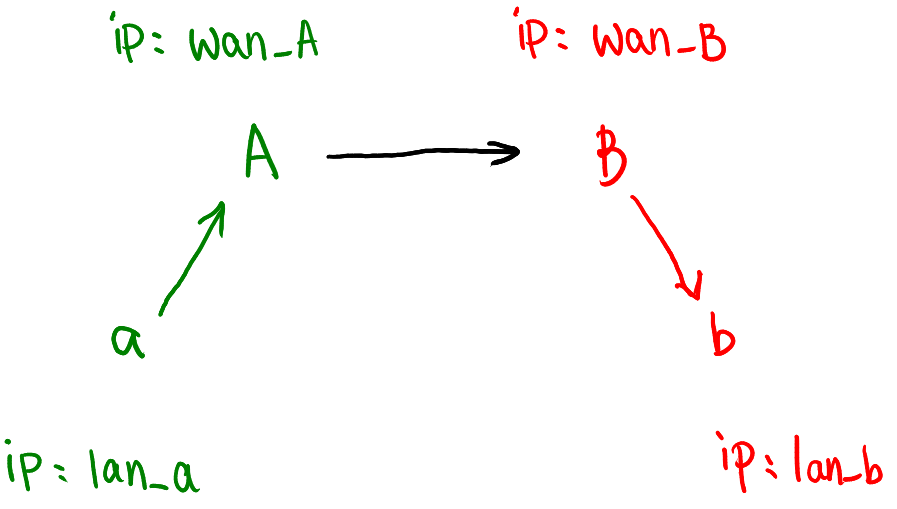 ip: wan_A
ip: wan_B
A
B
a
b
ip: lan_a
ip: lan_b